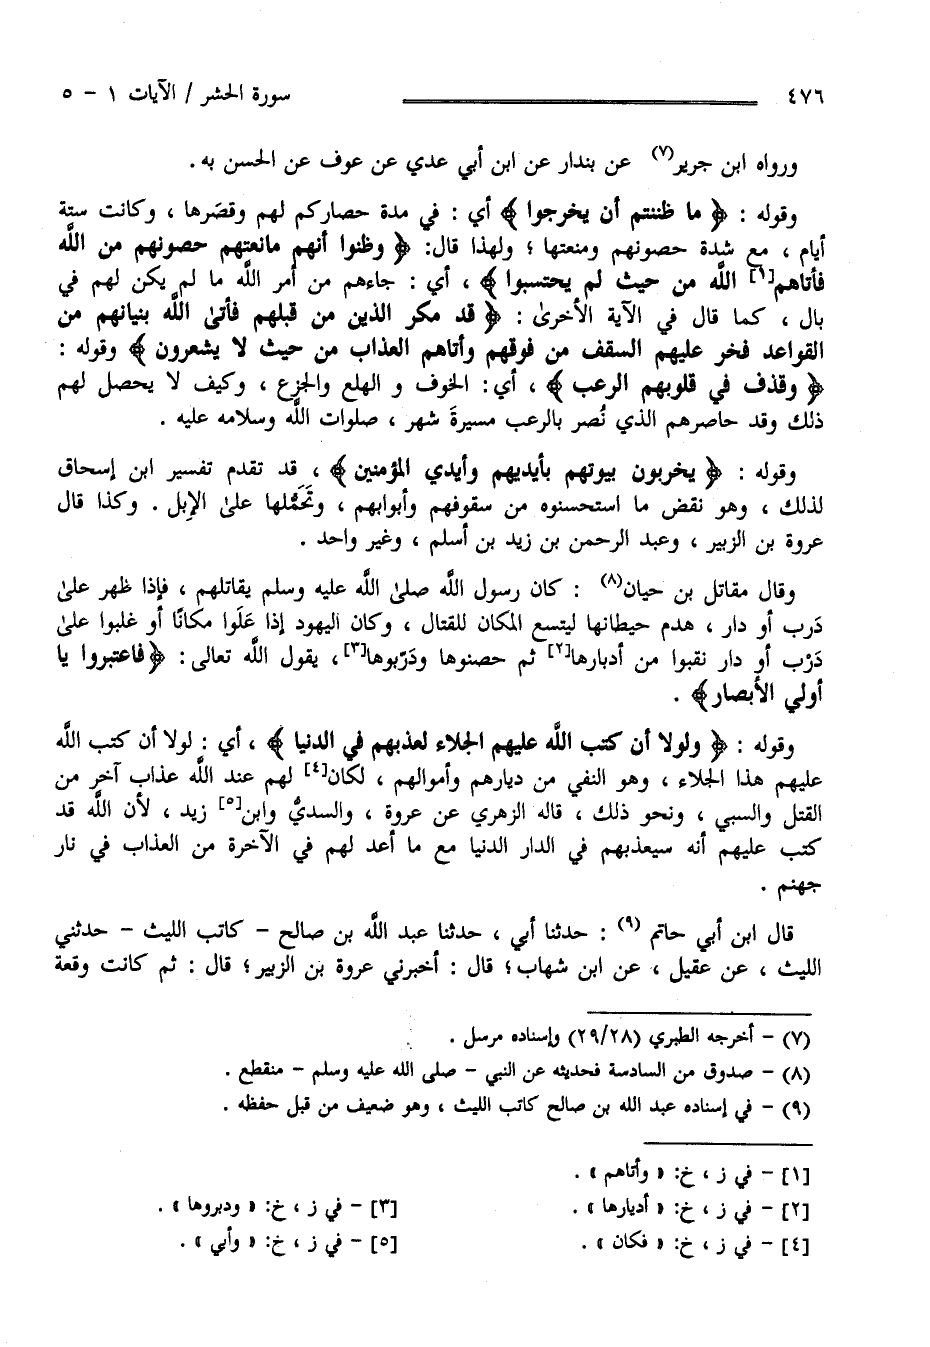 ٤٧٦ سورة الحشر / الآيات ١ - ٥
ورواه ابن جرير(٧) عن بندار عن ابن أبي عدي عن عوف عن الحسن به .
وقوله : ﴿ ما ظننتم أن يخرجوا ﴾ أي : في مدة حصاركم لهم وقصَرها ، وكانت ستة
أيام ، مع شدة حصونهم ومنعتها ؛ ولهذا قال: ﴿ وظنوا أنهم مانعتهم حصونهم من اللَّه
فأتاهم[١] اللَّه من حيث لم يحتسبوا ﴾ ، أي : جاءهم من أمر اللَّه ما لم يكن لهم في
بال ، كما قال في الآية الأخرىٰ : ﴿ قد مكر الذين من قبلهم فأتىٰ اللَّه بنيانهم من
القواعد فخر عليهم السقف من فوقهم وأتاهم العذاب من حيث لا يشعرون ﴾ وقوله :
﴿ وقذف في قلوبهم الرعب ﴾ ، أي: الخوف و الهلع والجزع ، وكيف لا يحصل لهم
ذلك وقد حاصرهم الذي نُصر بالرعب مسيرةَ شهر ، صلوات اللَّه وسلامه عليه .
وقوله : ﴿ يخربون بيوتهم بأيديهم وأيدي المؤمنين ﴾ ، قد تقدم تفسير ابن إسحاق
لذلك ، وهو نقض ما استحسنوه من سقوفهم وأبوابهم ، وتَحَمُّلها علىٰ الإبل . وكذا قال
عروة بن الزبير ، وعبد الرحمن بن زيد بن أسلم ، وغير واحد .
وقال مقاتل بن حيان(٨) : كان رسول اللَّه صلىٰ اللَّه عليه وسلم يقاتلهم ، فإذا ظهر علىٰ
دَرب أو دار ، هدم حيطانها ليتسع المكان للقتال ، وكان اليهود إذا عَلَوا مكانًا أو غلبوا علىٰ
دَرْب أو دار نقبوا من أدبارها[٢] ثم حصنوها ودَرّبوها[٣]، يقول اللَّه تعالى : ﴿فاعتبروا يا
أولي الأبصار﴾ .
وقوله : ﴿ ولولا أن كتب اللَّه عليهم الجلاء لعذبهم في الدنيا ﴾ ، أي : لولا أن كتب اللَّه
عليهم هذا الجلاء ، وهو النفي من ديارهم وأموالهم ، لكان[٤] لهم عند اللَّه عذاب آخر من
القتل والسبي ، ونحو ذلك ، قاله الزهري عن عروة ، والسديُّ وابن[٥] زيد ، لأن اللَّه قد
كتب عليهم أنه سيعذبهم في الدار الدنيا مع ما أعد لهم في الآخرة من العذاب في نار
جهنم .
قال ابن أبي حاتم (٩) : حدثنا أبي ، حدثنا عبد اللَّه بن صالح - كاتب الليث - حدثني
الليث ، عن عقيل ، عن ابن شهاب؛ قال : أخبرني عروة بن الزبير؛ قال : ثم كانت وقعة
(٧) - أخرجه الطبري (٢٩/٢٨) وإسناده مرسل .
(٨) - صدوق من السادسة فحديثه عن النبي - صلى الله عليه وسلم - منقطع .
(٩) - في إسناده عبد الله بن صالح كاتب الليث ، وهو ضعيف من قبل حفظه .
[١] - في ز ، خ: « وأتاهم » .
[٢] - في ز ، خ: « أديارها » . [٣] - في ز ، خ: « ودبروها » .
[٤] - في ز ، خ: « فكان » . [٥] - في ز ، خ: « وأبي » .